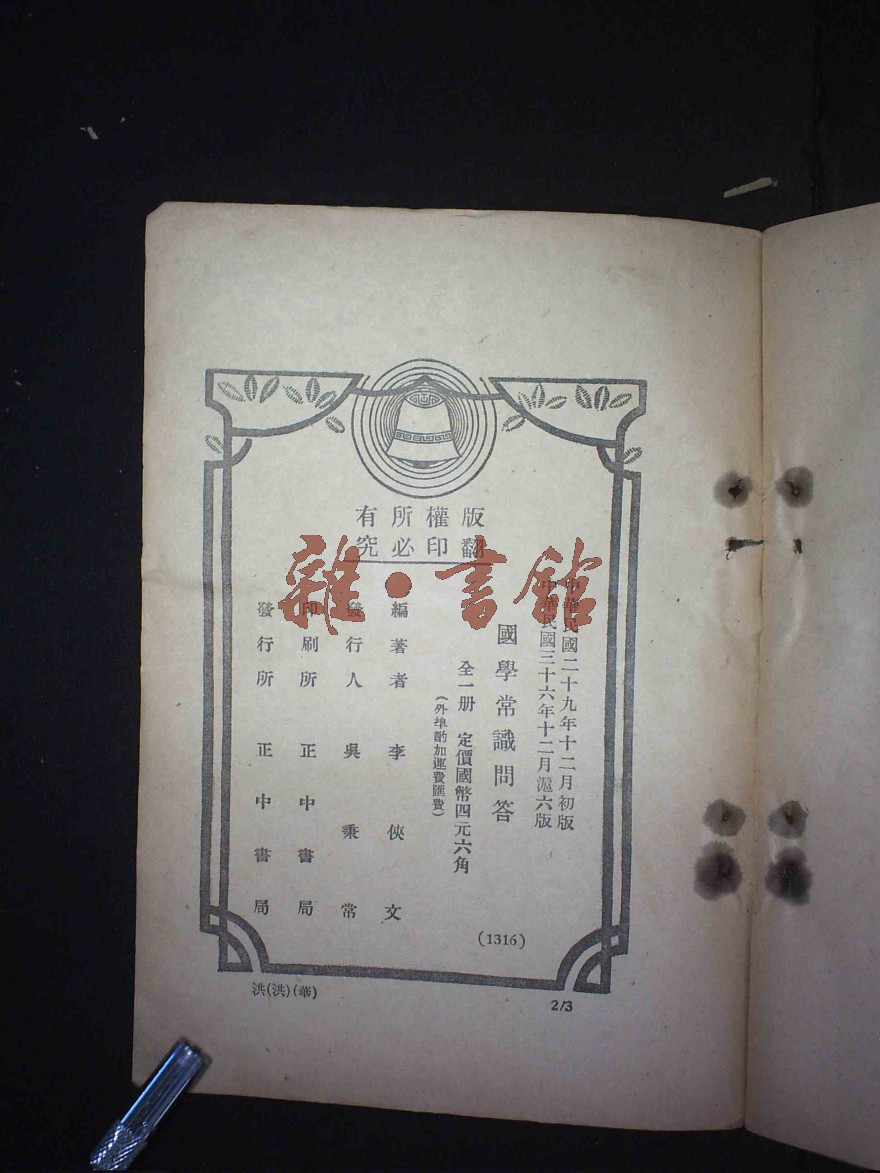 版權所有
翻印必究
中華民國二十九年十二月初版
中華民國三十六年十二月滬六版
國學常識問答
全一册 定價國幣四元六角
(外埠酌加運費匯費)
編著者 李俠文
發行人 吳秉常
印刷所 正中書局
發行所 正中書局
(1316)
洪(洪)(華)
2/3
雜·書館